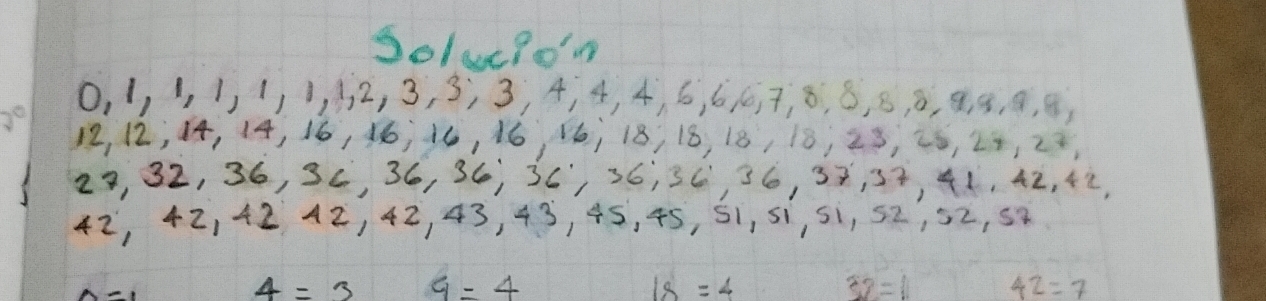 Solución
0, 1, 1, 1, 1, 1, 1, 2, 3, 3, 3, 4, 4, 4, 6, 6, 6, 7, 8, 8, 8, 8, 9, 9, 9, 9,
12, 12, 14, 14, 16, 16, 16, 16, 16, 18, 18, 18, 18, 23, 23, 27, 27,
27, 32, 36, 36, 36, 36, 36, 36, 36, 36, 37, 37, 41, 42, 42,
42, 42, 42, 42, 42, 43, 43, 45, 45, 51, 51, 51, 52, 52, 57
4 = 3 9 = 4 18 = 4 32 = 1 42 = 7